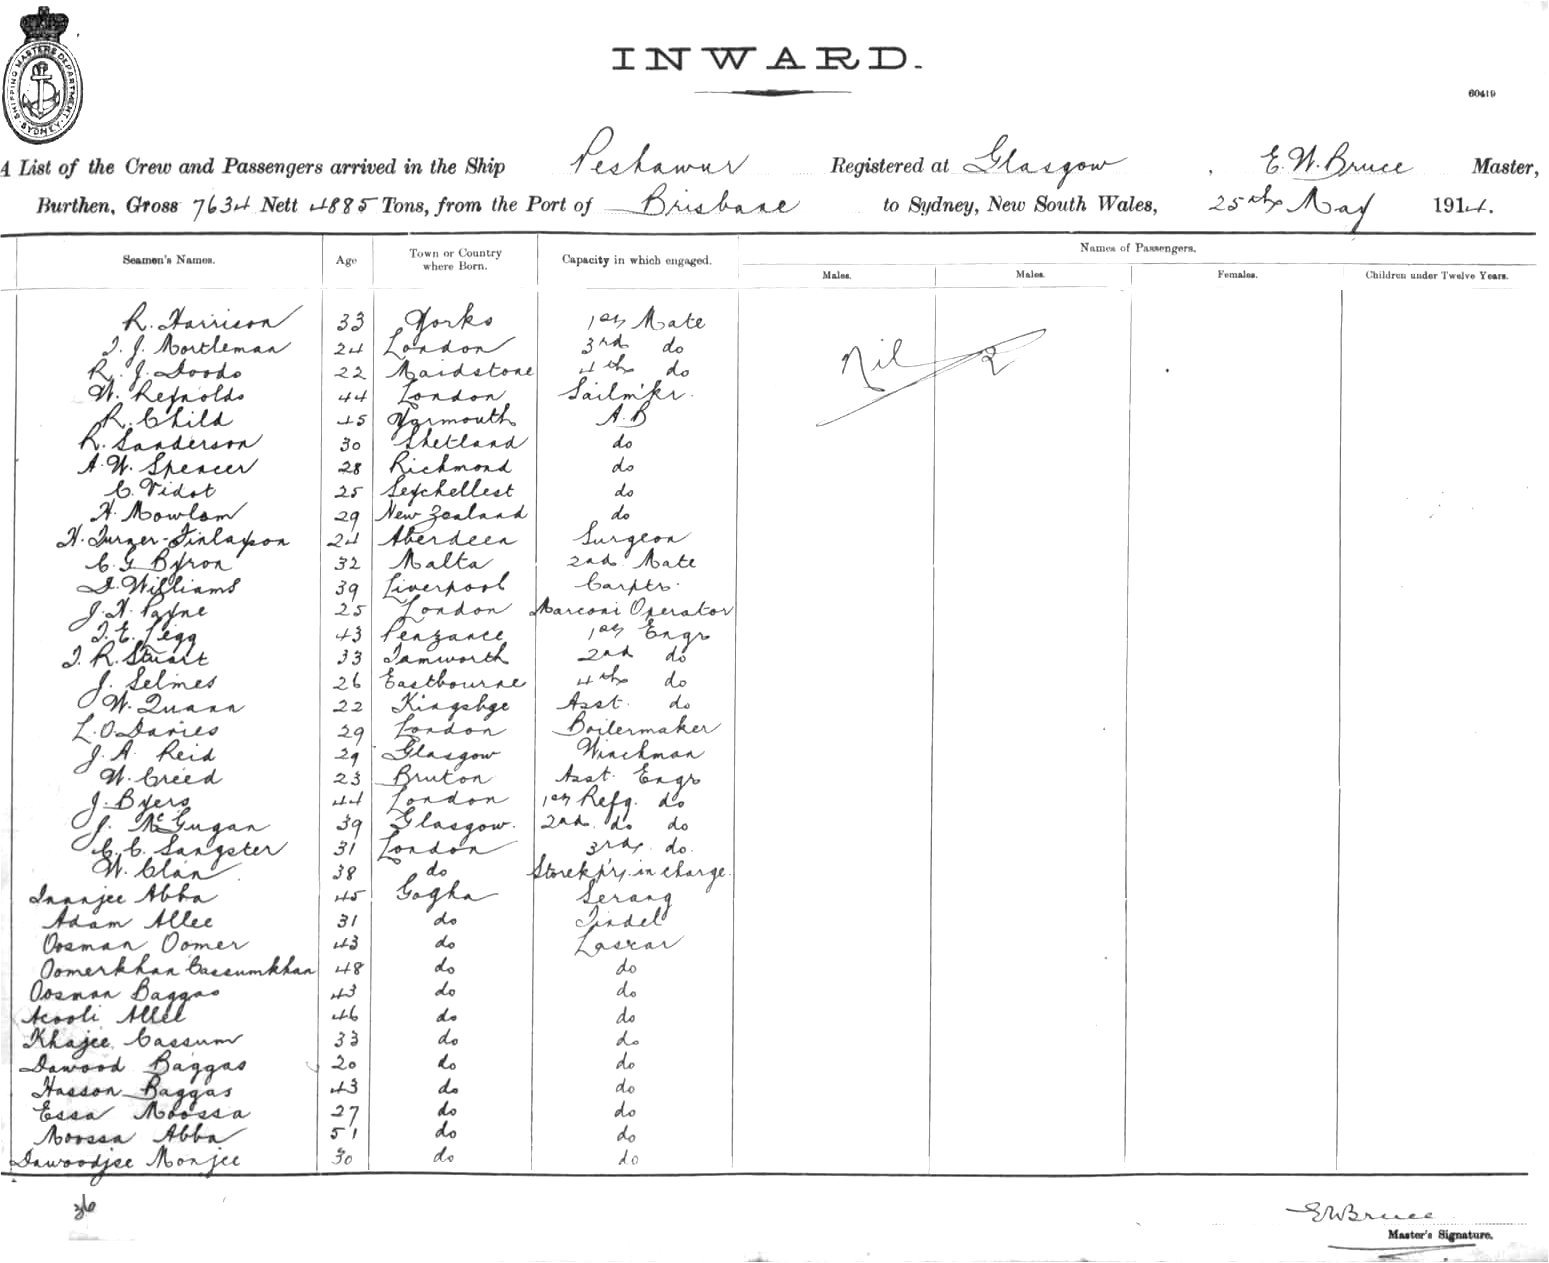 SHIPPING MASTERS DEPARTMENT SYDNEY
INWARD.
60419
A List of the Crew and Passengers arrived in the Ship Peshawur Registered at Glasgow, E. W. Bruce Master,
Burthen, Gross 7634 Nett 4885 Tons, from the Port of Brisbane to Sydney, New South Wales, 25th May 1914.
Seamen's Names. Age Town or Country where Born. Capacity in which engaged. Names of Passengers.
Males. Males. Females. Children under Twelve Years.
R. Harrison 33 Yorks 1st Mate
T. J. Mortleman 24 London 3rd do Nil
R. J. Doodo 22 Maidstone 4th do
W. Reynolds 44 London Sailm'kr.
R. Child 45 Yarmouth A.B
R. Sanderson 30 Shetland do
A. W. Spencer 28 Richmond do
C. Vidot 25 Seychellest do
H. Mowlam 29 New Zealand do
H. Turner-Finlayson 24 Aberdeen Surgeon
C. G Byron 32 Malta 2nd Mate
D. Williams 39 Liverpool Carptr.
J. H. Payne 25 London Marconi Operator
T. E. Pegg 43 Penzance 1st Engr
T. R. Stuart 33 Tamworth 2nd do
J. Selmes 26 Eastbourne 4th do
W. Quann 22 Kingsbge Asst. do
L. O. Davies 29 London Boilermaker
J. A. Reid 29 Glasgow Winchman
W. Creed 23 Bruton Asst. Engr
J. Byers 44 London 1st Refg. do
J. McGugan 39 Glasgow. 2nd do do
C. C. Sangster 31 London 3rd do.
W. Clan 38 do Storek'prs in charge.
Inanjee Abba 45 Gogha Serang
Adam Allee 31 do Tindel
Oosman Oomer 43 do Lascar
Oomerkhan Cassumkhan 48 do do
Oosman Baggas 43 do do
Acooli Allee 46 do do
Khajee Cassum 33 do do
Dawood Baggas 20 do do
Hasson Baggas 43 do do
Essa Moossa 27 do do
Moossa Abba 51 do do
Dawoodjee Monjee 30 do do
36
EWBruce
Master's Signature.